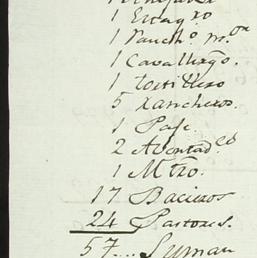 1
1
1 Ranch.o m.or
1 Cavallerg.o
1 tortillero
5 Rancheros.
1 Paje.
2 Aventad.es
1 Mtro.
17 Bacieros
24 Pastores.
57... Suman